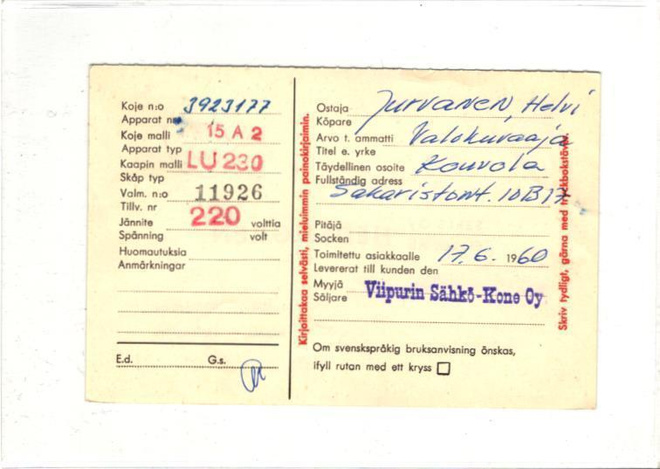 Koje n:o 3923177
Apparat nr
Koje malli 15 A 2
Apparat typ
Kaapin malli LU 230
Skåp typ
Valm. n:o 11926
Tillv. nr
Jännite 220 volttia
Spänning volt
Huomautuksia
Anmärkningar
E.d. G.s.
Kirjoittakaa selvästi, mieluimmin painokirjaimin.
Ostaja Jurvanen, Helvi
Köpare
Arvo t. ammatti Valokuvaaja
Titel e. yrke
Täydellinen osoite Kouvola
Fullständig adress
Sakaristont. 10 B 17
Pitäjä
Socken
Toimitettu asiakkaalle 17.6. 1960
Levererat till kunden den
Myyjä Viipurin Sähkö-Kone Oy
Säljare
Om svenskspråkig bruksanvisning önskas,
ifyll rutan med ett kryss
Skriv tydligt, gärna med tryckbokstäver.